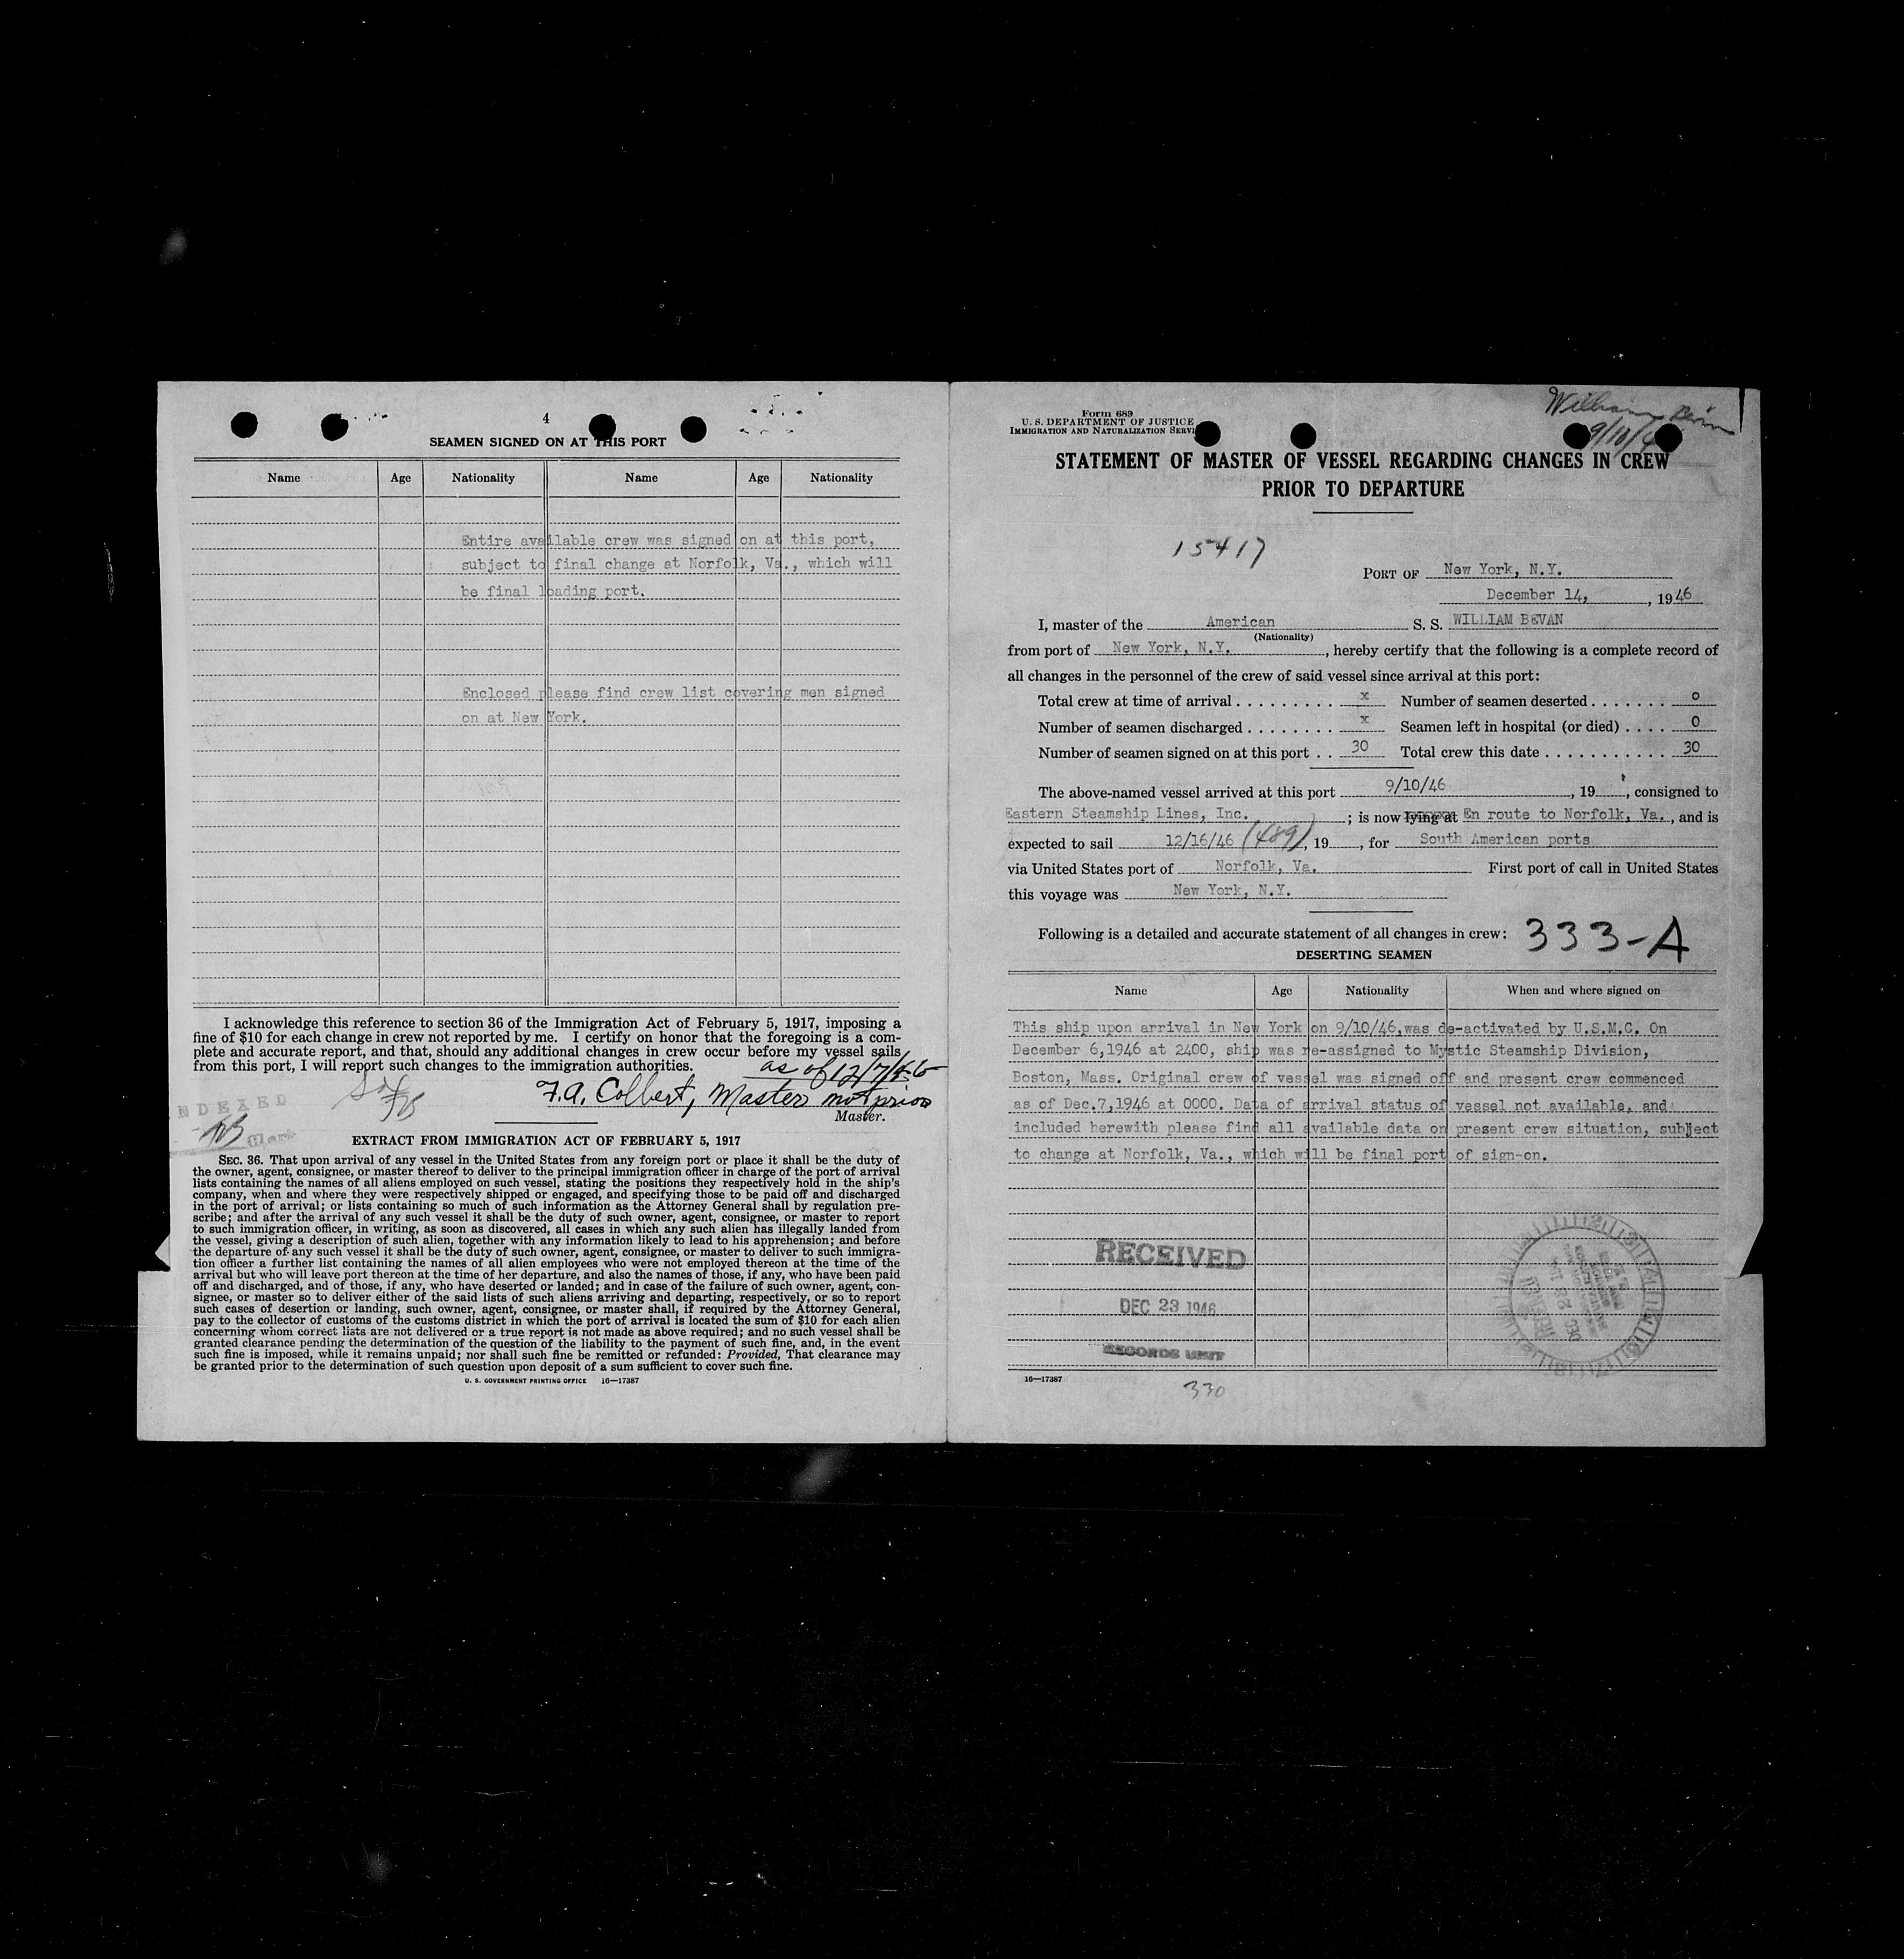 4
SEAMEN SIGNED ON AT THIS PORT
Name Age Nationality Name Age Nationality
Entire available crew was signed on at this port,
subject to final change at Norfolk, Va., which will
be final loading port.
Enclosed please find crew list covering men signed
on at New York.
I acknowledge this reference to section 36 of the Immigration Act of February 5, 1917, imposing a
fine of $10 for each change in crew not reported by me. I certify on honor that the foregoing is a com-
plete and accurate report, and that, should any additional changes in crew occur before my vessel sails
from this port, I will report such changes to the immigration authorities.
as of 12/7/46
F.A. Colbert, Master not prior
Master.
INDEXED
EXTRACT FROM IMMIGRATION ACT OF FEBRUARY 5, 1917
SEC. 36. That upon arrival of any vessel in the United States from any foreign port or place it shall be the duty of
the owner, agent, consignee, or master thereof to deliver to the principal immigration officer in charge of the port of arrival
lists containing the names of all aliens employed on such vessel, stating the positions they respectively hold in the ship's
company, when and where they were respectively shipped or engaged, and specifying those to be paid off and discharged
in the port of arrival; or lists containing so much of such information as the Attorney General shall by regulation pre-
scribe; and after the arrival of any such vessel it shall be the duty of such owner, agent, consignee, or master to report
to such immigration officer, in writing, as soon as discovered, all cases in which any such alien has illegally landed from
the vessel, giving a description of such alien, together with any information likely to lead to his apprehension; and before
the departure of any such vessel it shall be the duty of such owner, agent, consignee, or master to deliver to such immigra-
tion officer a further list containing the names of all alien employees who were not employed thereon at the time of the
arrival but who will leave port thereon at the time of her departure, and also the names of those, if any, who have been paid
off and discharged, and of those, if any, who have deserted or landed; and in case of the failure of such owner, agent, con-
signee, or master so to deliver either of the said lists of such aliens arriving and departing, respectively, or so to report
such cases of desertion or landing, such owner, agent, consignee, or master shall, if required by the Attorney General,
pay to the collector of customs of the customs district in which the port of arrival is located the sum of $10 for each alien
concerning whom correct lists are not delivered or a true report is not made as above required; and no such vessel shall be
granted clearance pending the determination of the question of the liability to the payment of such fine, and, in the event
such fine is imposed, while it remains unpaid; nor shall such fine be remitted or refunded: Provided, That clearance may
be granted prior to the determination of such question upon deposit of a sum sufficient to cover such fine.
U. S. GOVERNMENT PRINTING OFFICE 16—17387
Form 689
U. S. DEPARTMENT OF JUSTICE
IMMIGRATION AND NATURALIZATION SERVI
William
9/10/4
STATEMENT OF MASTER OF VESSEL REGARDING CHANGES IN CREW
PRIOR TO DEPARTURE
15417
PORT OF New York, N.Y.
December 14, , 1946
I, master of the American S. S. WILLIAM BEVAN
(Nationality)
from port of New York, N.Y. , hereby certify that the following is a complete record of
all changes in the personnel of the crew of said vessel since arrival at this port:
Total crew at time of arrival . . . . . . . . . x Number of seamen deserted . . . . . . . 0
Number of seamen discharged . . . . . . . . x Seamen left in hospital (or died) . . . . 0
Number of seamen signed on at this port . . 30 Total crew this date . . . . . . . . . . . 30
The above-named vessel arrived at this port 9/10/46 , 19 , consigned to
Eastern Steamship Lines, Inc. ; is now lying at En route to Norfolk, Va. , and is
expected to sail 12/16/46 (489) , 19 , for South American ports
via United States port of Norfolk, Va. First port of call in United States
this voyage was New York, N.Y.
Following is a detailed and accurate statement of all changes in crew: 333-A
DESERTING SEAMEN
Name Age Nationality When and where signed on
This ship upon arrival in New York on 9/10/46,was de-activated by U.S.M.C. On
December 6,1946 at 2400, ship was re-assigned to Mystic Steamship Division,
Boston, Mass. Original crew of vessel was signed off and present crew commenced
as of Dec.7,1946 at 0000. Data of arrival status of vessel not available, and
included herewith please find all available data on present crew situation, subject
to change at Norfolk, Va., which will be final port of sign-on.
RECEIVED
DEC 23 1946
RECORDS UNIT
16—17387
330